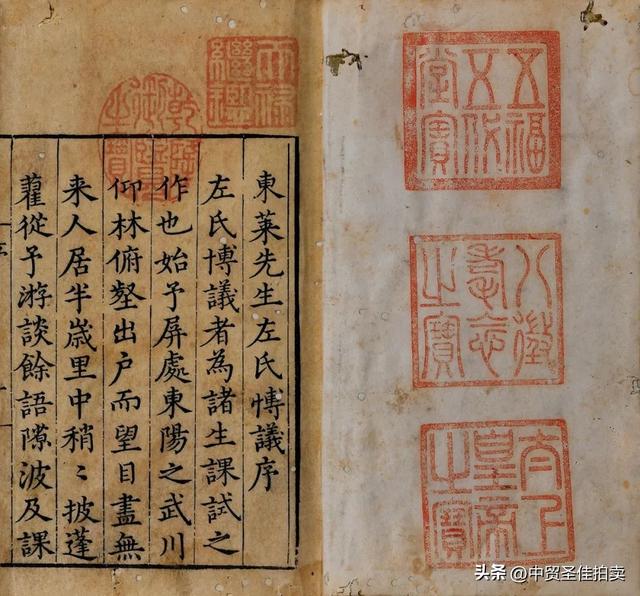 五福
五代
堂寶
八徵
耄念
之寶
太上
皇帝
之寶
天祿
繼鑑
乾隆
御覽
之寶
東萊先生左氏愽議序
左氏博議者為諸生課試之
作也始予屏處東陽之武川
仰林俯壑出戶而望目盡無
来人居半歲里中稍〻披蓬
藋從予游談餘語隙波及課
头条 @中贸圣佳拍卖